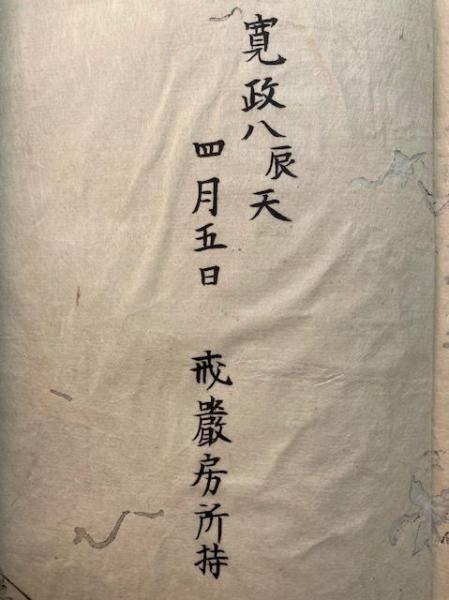 寛政八辰天
四月五日 戒巖房所持